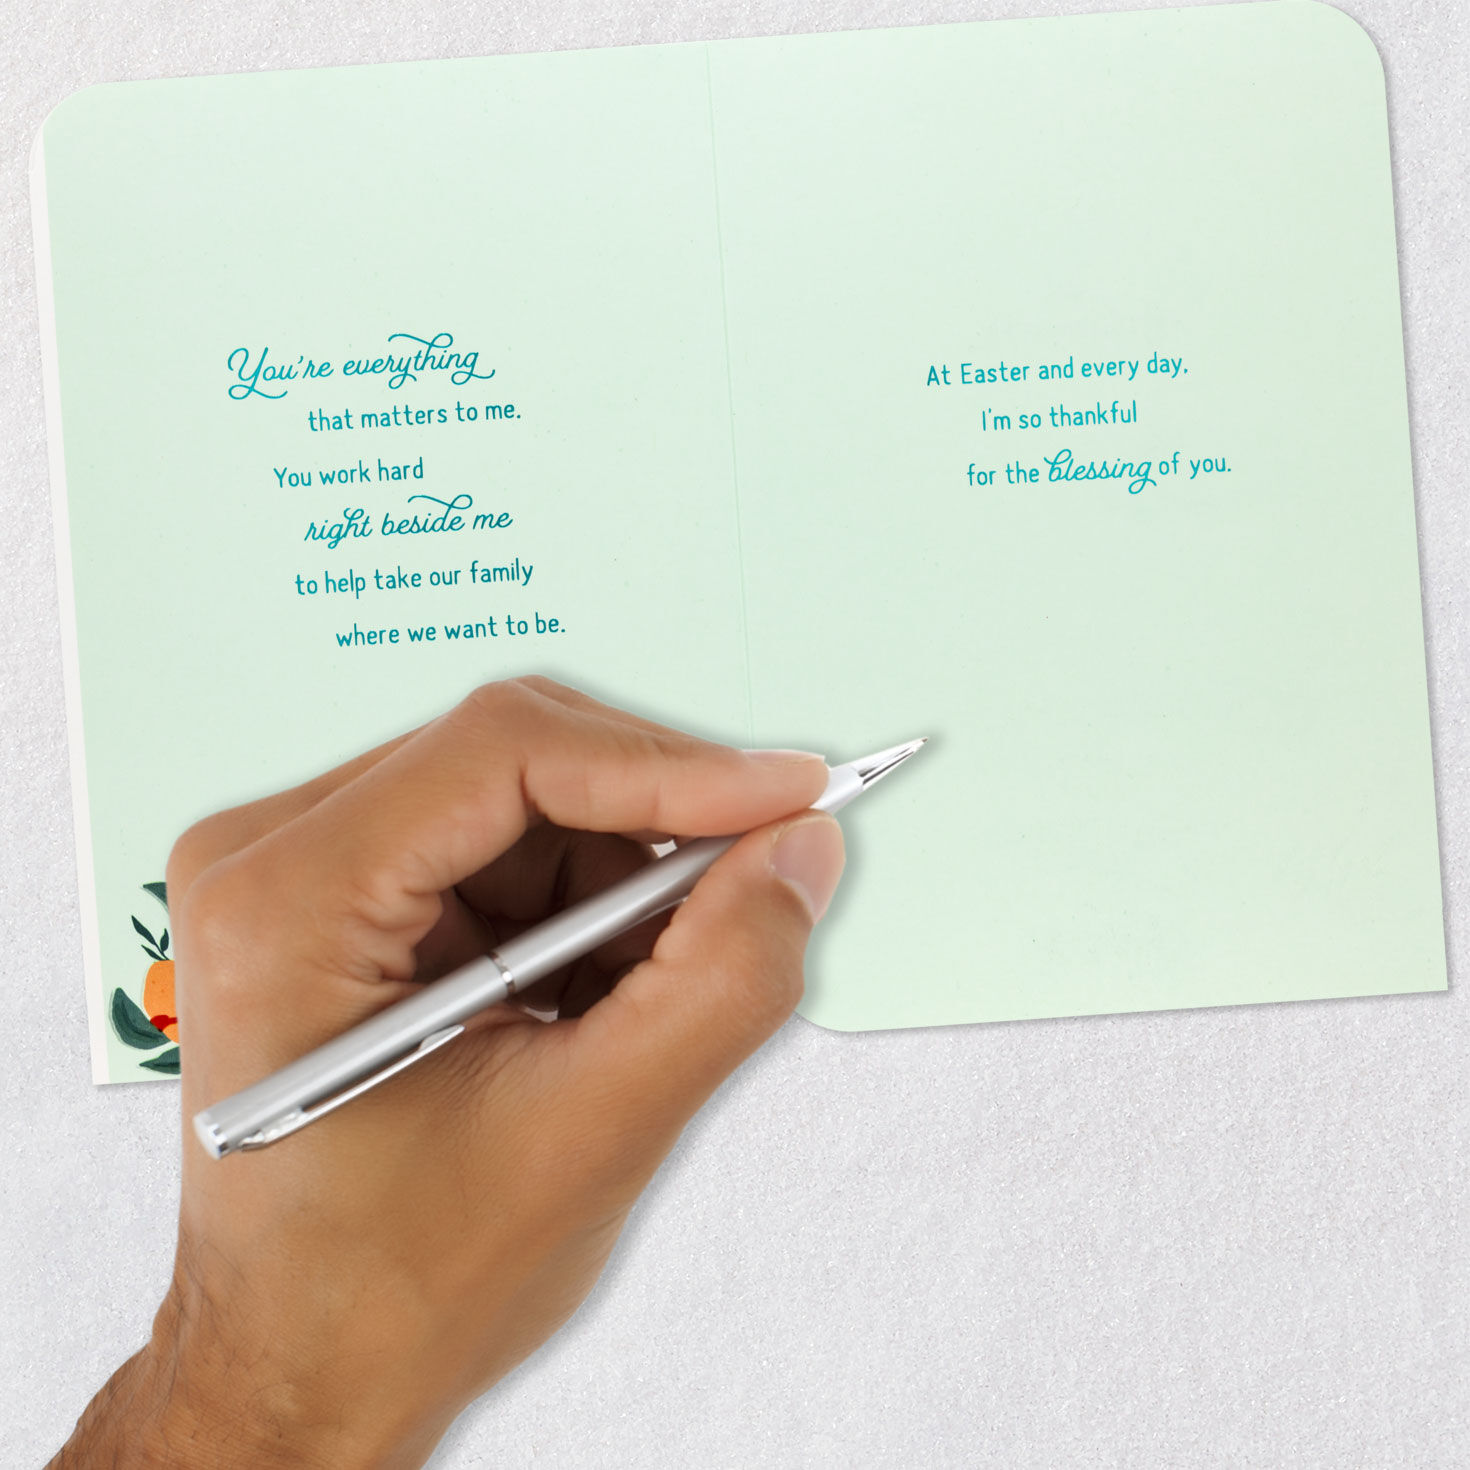 You're everything
that matters to me.
You work hard
right beside me
to help take our family
where we want to be.
At Easter and every day,
I'm so thankful
for the blessing of you.